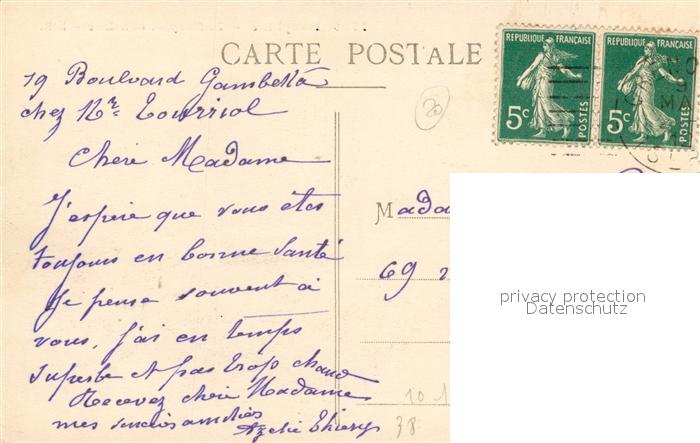 CARTE POSTALE
REPUBLIQUE FRANÇAISE
5c
POSTES
REPUBLIQUE FRANÇAISE
5c
POSTES
19 Boulevard Gambetta
chez Mr
20
Chère Madame
J'espère que vous êtes
toujours en bonne santé
Je pense souvent à
vous, j'ai eu temps
superbe et pas trop chaud
Recevez chère Madame
mes sincères amitiés
Mada
69
privacy protection
Datenschutz
10 1
38